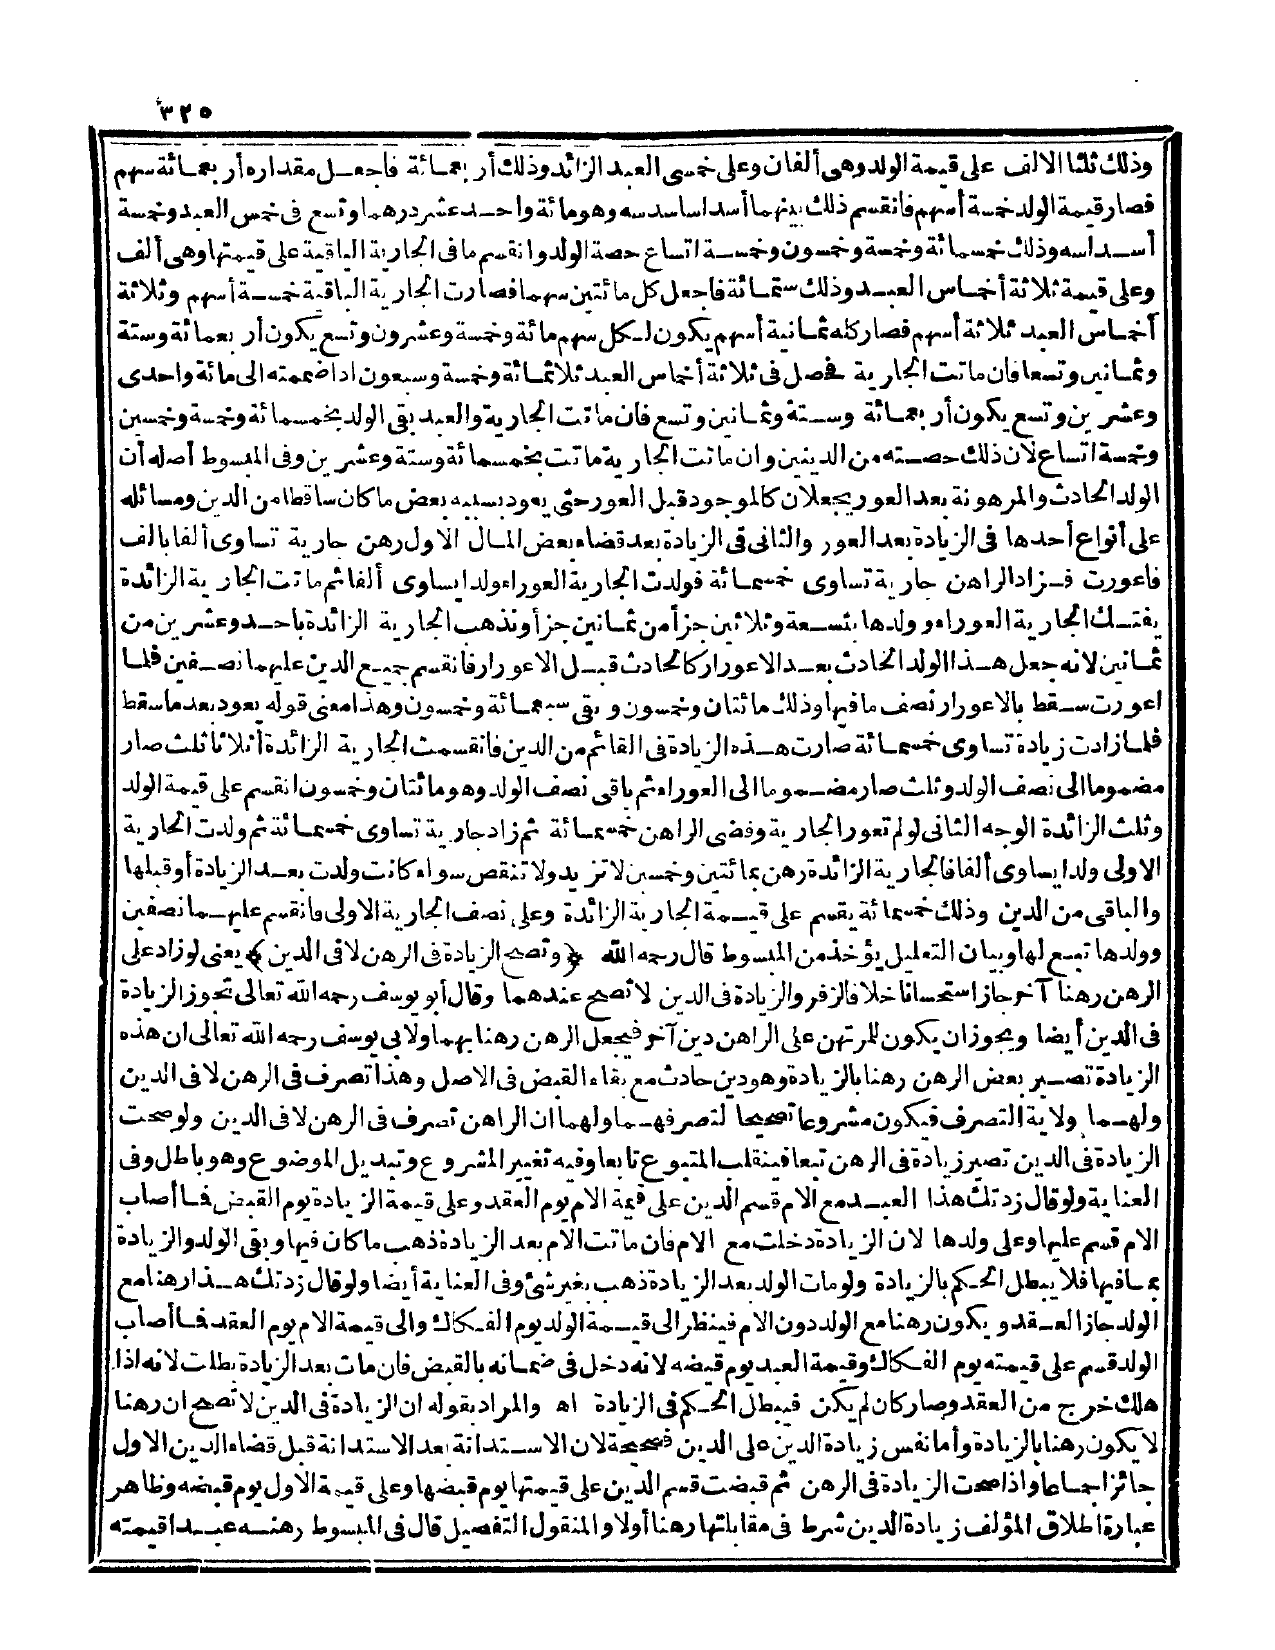 ٣٢٥
وذلك ثلثا الالف على قيمة الولد وهى ألفان وعلى خمسى العبد الزائد وذلك أربعمائة فاجعل مقداره أربعمائة سهم
فصار قيمة الولد خمسة أسهم فانقسم ذلك بينهما أسداسا سدسه وهو مائة واحد عشر درهما وتسع فى خمس العبد وخمسة
أسداسه وذلك خمسمائة وخمسة وخمسون وخمسة اتساع حصة الولد وانقسم ما فى الجارية الباقية على قيمتها وهى ألف
وعلى قيمة ثلاثة أخماس العبد وذلك ستمائة فاجعل كل مائتين سهما فصارت الجارية الباقية خمسة أسهم وثلاثة
أخماس العبد ثلاثة أسهم فصار كله ثمانية أسهم يكون لكل سهم مائة وخمسة وعشرون وتسع يكون أربعمائة وستة
وثمانين وتسعا فان ماتت الجارية فحصل فى ثلاثة أخماس العبد ثلاثمائة وخمسة وسبعون اذا ضممته الى مائة واحدى
وعشرين وتسع يكون أربعمائة وستة وثمانين وتسع فان ماتت الجارية والعبد بقى الولد بخمسمائة وخمسة وخمسين
وخمسة اتساع لان ذلك حصته من الدينين وان ماتت الجارية ماتت بخمسمائة وستة وعشرين وفى المبسوط أصله أن
الولد الحادث والمرهونة بعد العور يجعلان كالموجود قبل العور حتى يعود بسببه بعض ما كان ساقطا من الدين ومسائله
على أنواع أحدها فى الزيادة بعد العور والثانى فى الزيادة بعد قضاء بعض المال الاول رهن جارية تساوى ألفا بالف
فاعورت فزاد الراهن جارية تساوى خمسمائة فولدت الجارية العوراء ولدا يساوى ألفا ثم ماتت الجارية الزائدة
يفتك الجارية العوراء وولدها بتسعة وثلاثين جزأ من ثمانين جزأ وتذهب الجارية الزائدة باحد وعشرين من
ثمانين لانه جعل هذا الولد الحادث بعد الاعورار كالحادث قبل الاعورار فانقسم جميع الدين عليهما نصفين فلما
اعورت سقط بالاعورار نصف ما فيها وذلك مائتان وخمسون وبقى سبعمائة وخمسون وهذا معنى قوله يعود بعد ما سقط
فلما زادت زيادة تساوى خمسمائة صارت هذه الزيادة فى القائم من الدين فانقسمت الجارية الزائدة أثلاثا ثلث صار
مضموما الى نصف الولد وثلث صار مضموما الى العوراء ثم باقى نصف الولد وهو مائتان وخمسون انقسم على قيمة الولد
وثلث الزائدة الوجه الثانى لو لم تعور الجارية وقضى الراهن خمسمائة ثم زاد جارية تساوى خمسمائة ثم ولدت الجارية
الاولى ولدا يساوى ألفا فالجارية الزائدة رهن بمائتين وخمسين لا تزيد ولا تنقص سواء كانت ولدت بعد الزيادة أو قبلها
والباقى من الدين وذلك خمسمائة يقسم على قيمة الجارية الزائدة وعلى نصف الجارية الاولى فانقسم عليهما نصفين
وولدها تبع لها وبيان التعليل يؤخذ من المبسوط قال رحمه الله ﴿وتصح الزيادة فى الرهن لا فى الدين﴾ يعنى لو زاد على
الرهن رهنا آخر جاز استحسانا خلافا لزفر والزيادة فى الدين لا تصح عندهما وقال أبو يوسف رحمه الله تعالى تجوز الزيادة
فى الدين أيضا ويجوز ان يكون للمرتهن على الراهن دين آخر فيجعل الرهن رهنا بهما ولابى يوسف رحمه الله تعالى ان هذه
الزيادة تصير بعض الرهن رهنا بالزيادة وهو دين حادث مع بقاء القبض فى الاصل وهذا تصرف فى الرهن لا فى الدين
ولهما ولاية التصرف فيكون مشروعا تصحيحا لتصرفهما ولهما ان الراهن تصرف فى الرهن لا فى الدين ولو صحت
الزيادة فى الدين تصير زيادة فى الرهن تبعا فينقلب المتبوع تابعا وفيه تغيير المشروع وتبديل الموضوع وهو باطل وفى
العناية ولو قال زدتك هذا العبد مع الام قسم الدين على قيمة الام يوم العقد وعلى قيمة الزيادة يوم القبض فما أصاب
الام قسم عليها وعلى ولدها لان الزيادة دخلت مع الام فان ماتت الام بعد الزيادة ذهب ما كان فيها وبقى الولد والزيادة
بما فيها فلا يبطل الحكم بالزيادة ولو مات الولد بعد الزيادة ذهب بغير شئ وفى العناية أيضا ولو قال زدتك هذا رهنا مع
الولد جاز العقد ويكون رهنا مع الولد دون الام فينظر الى قيمة الولد يوم الفكاك والى قيمة الام يوم العقد فما أصاب
الولد قسم على قيمته يوم الفكاك وقيمة العبد يوم قبضه لانه دخل فى ضمانه بالقبض فان مات بعد الزيادة بطلت لانه اذا
هلك خرج من العقد وصار كان لم يكن فيبطل الحكم فى الزيادة اه والمراد بقوله ان الزيادة فى الدين لا تصح ان رهنا
لا يكون رهنا بالزيادة وأما نفس زيادة الدين على الدين فصحيحة لان الاستدانة بعد الاستدانة قبل قضاء الدين الاول
جائز اجماعا واذا صحت الزيادة فى الرهن ثم قبضت قسم الدين على قيمتها يوم قبضها وعلى قيمة الاول يوم قبضه وظاهر
عبارة اطلاق المؤلف زيادة الدين شرط فى مقابلتها رهنا أولا والمنقول التفصيل قال فى المبسوط رهنه عبدا قيمته